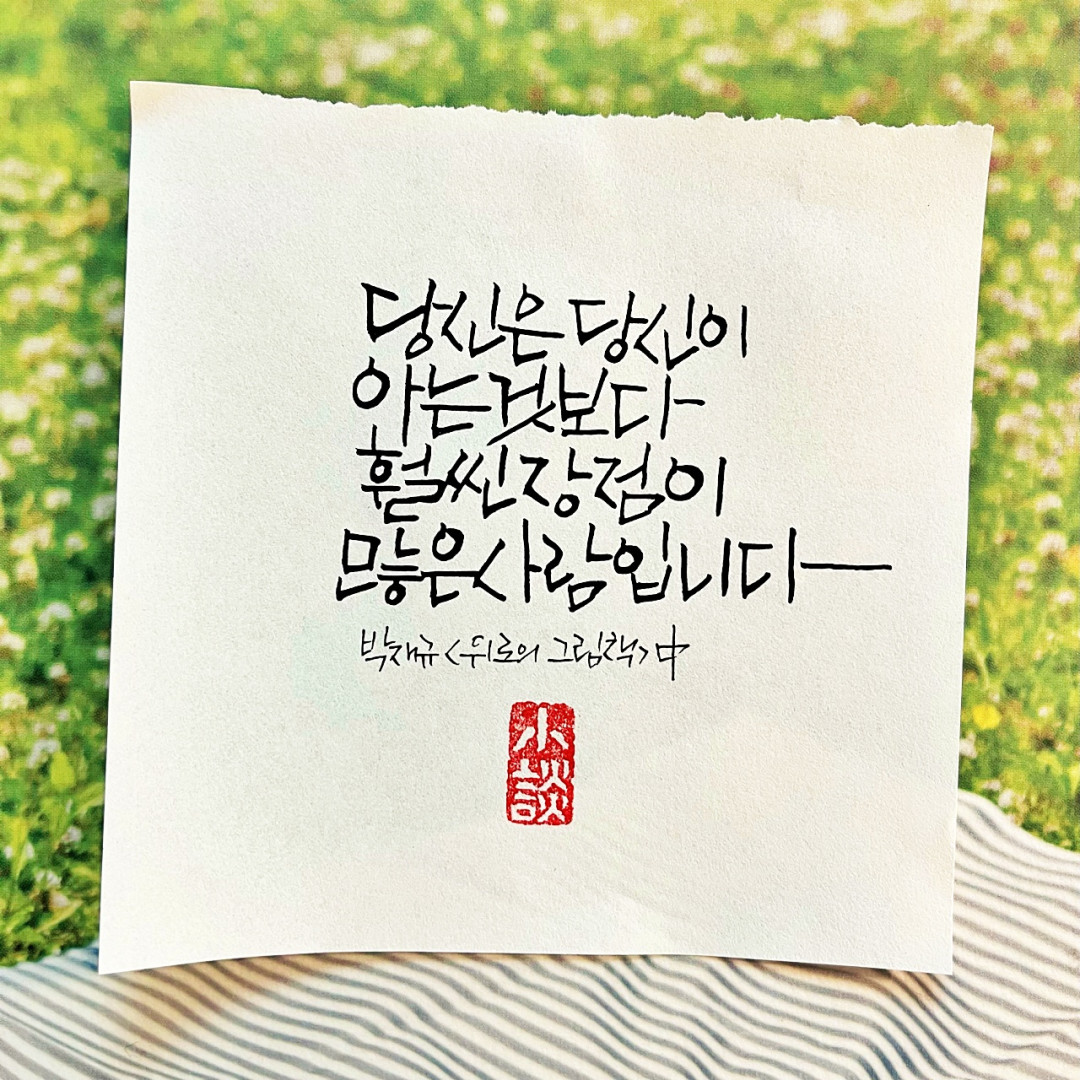 당신은 당신이
아는것보다
훨씬 장점이
많은 사람입니다
박재규 <위로의 그림책> 中
小談